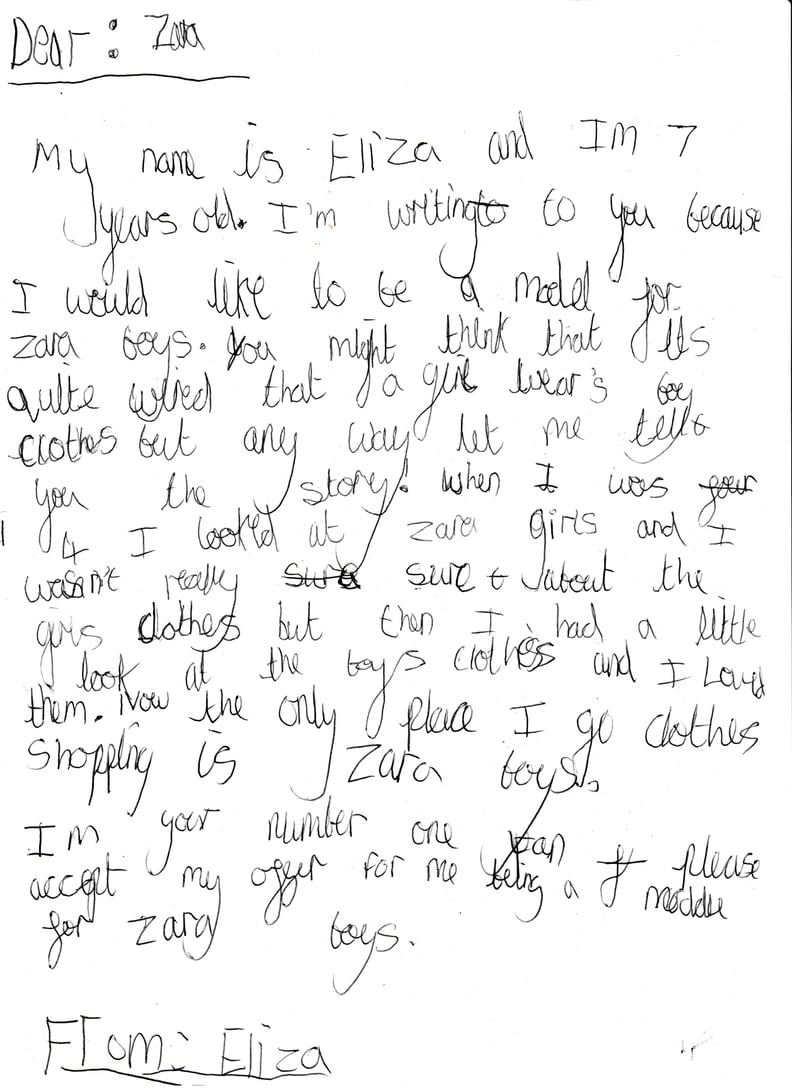 Dear: Zara
My name is Eliza and Im 7
years old. I'm writing to to you because
I would like to be a model for
zara boys. You might think that its
quite wired that a girl wear's boy
clothes but any way let me tell
you the story! when I was four
4 I looked at zara girls and I
wasn't really sure sure about the
girls clothes but then I had a little
look at the boys clothes and I Loved
them. Now the only place I go clothes
shopping is Zara boys.
Im your number one fan please
accept my offer for me being a moddle
for zara boys.
From: Eliza